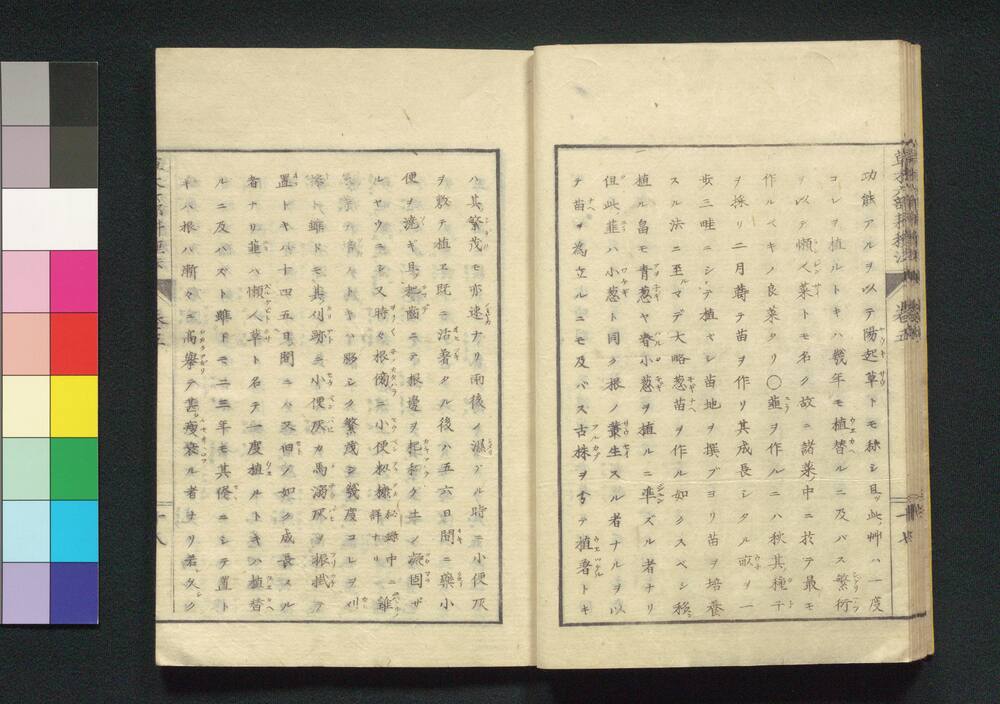 功能アルヲ以テ陽起草トモ称シ且ツ此艸ハ一度
コレヲ植ルトキハ幾年モ植替ルニ及バス繁衍
ヲ以テ懶人菜トモ名ク故ニ諸菜中ニ於テ最モ
作ルベキノ良菜タリ〇韮ヲ作ルニハ秋其種子
ヲ採リ二月蒔テ苗ヲ作リ其成長シタル畝ヲ一
歩三畦ニシテ植ベシ苗地ヲ撰ブヨリ苗ヲ培養
スル法ニ至ルマデ大略葱苗ヲ作ル如クスベシ
植ル畠モ青葱ヤ春小葱ヲ植ルニ準ズル者ナリ
但此韮ハ小葱ト同ク根ノ叢生スル者ナルヲ以
テ苗ヲ為立ルニモ及バス古株ヲ分テ植著トキ
ハ其繁茂モ亦速ナリ雨後ノ濕タル時ニ小便灰
ヲ敷テ植ヱ既ニ活著タル後ハ五六日間ニ藥小
便ヲ澆ギ且ツ把齒ニテ根邊ヲ把和ク土ノ凝固ザ
ルヤウニシ又時々根傍ニ小便
トキハ勝シク繁茂シ幾度コレヲ刈
採ト雖トモ其刈跡ニ小便灰カ馬溺灰ヲ
置トキハ十四五日間ニハ又旧ノ如ク成長スル
者ナリ韮ハ懶人草ト名テ一度植ルトキハ植替
ルニ及ハズト雖トモ二三年モ其儘ニシテ置ト
キハ根ハ漸々ニ高擧テ甚瘦衰ル者ナリ若久シク